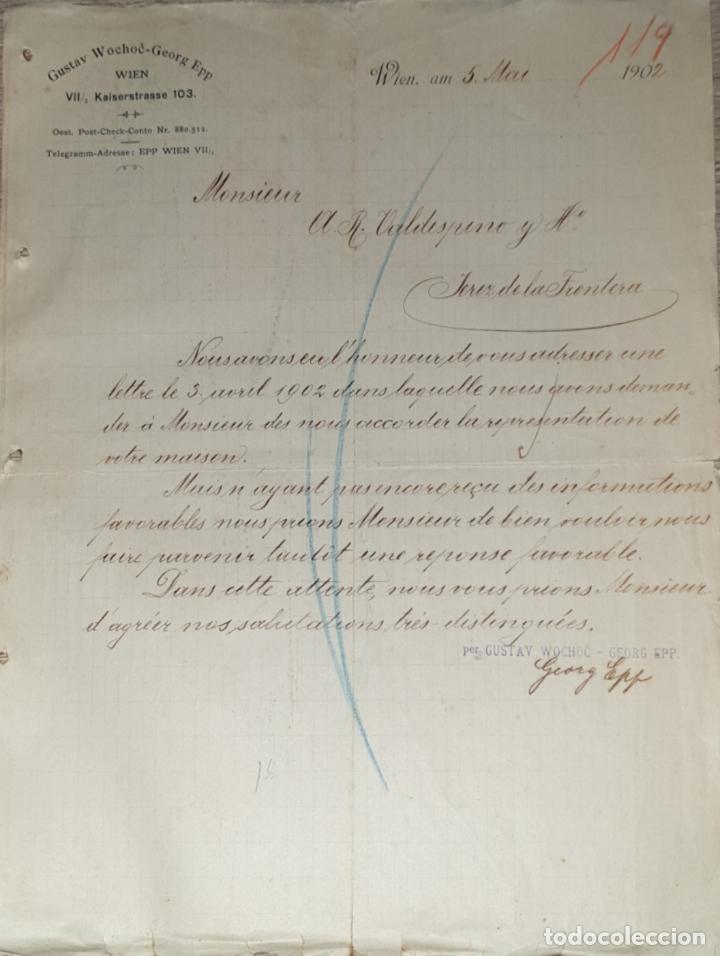 Gustav Wochoč-Georg Epp
WIEN
VII/3 Kaiserstrasse 103.
Oest. Post-Check-Conto Nr. 880.512.
Telegramm-Adresse: EPP WIEN VII/3
119
Wien, am 5. Mai 1902
Monsieur
A. R. Valdespino y Ho
Jerez de la Frontera
Nous avons eu l'honneur de vous adresser une
lettre le 3. avril 1902 dans laquelle nous avons deman-
der à Monsieur des nous accorder la representation de
votre maison.
Mais n'ayant pas encore reçu des informations
favorables nous prions Monsieur de bien vouloir nous
faire parvenir tantôt une reponse favorable.
Dans cette attente, nous vous prions Monsieur
d'agréer nos salutations très-distinguées.
per GUSTAV WOCHOČ - GEORG EPP.
Georg Epp
todocoleccion